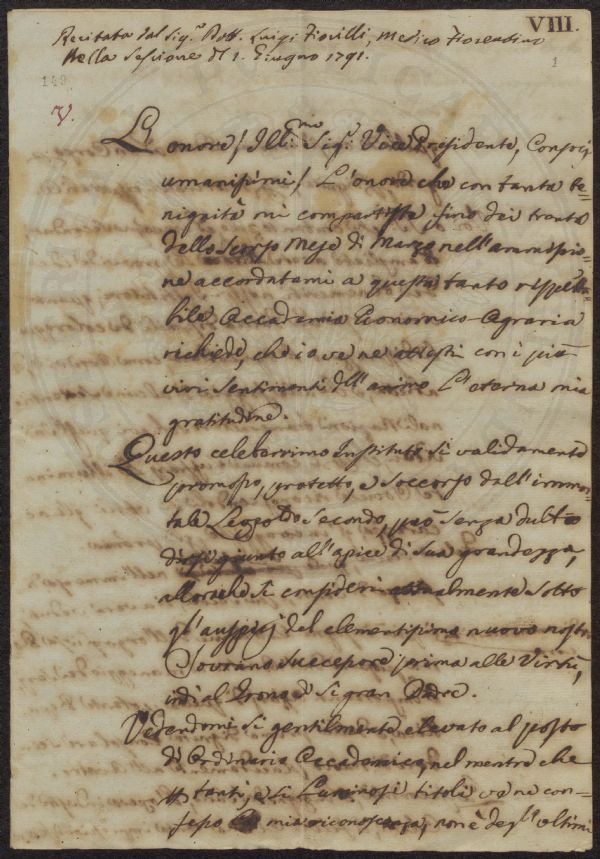 VIII.
Recitata dal Sig.r Dott. Luigi Fiorilli, Medico Fiorentino
Nella Sessione del 1. Giugno 1791.
1
149
V.
L'onore, Ill.mo Sig.r Vice Presidente, Consocj
umanissimi, L'onore che con tanta be=
nignità mi compartiste fino dei trenta
dello scorso Mese di Marzo nell'ammissio=
ne accordatami a questa tanto rispetta=
bile Accademia Economico-Agraria
richiede, che io ve ne attesti con i più
vivi sentimenti dell'animo l'eterna mia
gratitudine.
Questo celeberrimo Instituto sì validamente
promosso, protetto, e soccorso dall'immor=
tale Leopoldo Secondo, può senza dubbio
dirsi giunto all'apice di sua grandezza,
allorchè si consideri attualmente sotto
gl'auspicj del clementissimo nuovo nostro
Sovrano successore prima alle Virtù,
indi al Trono di sì gran Padre.
Vedendomi sì gentilmente elevato al posto
di Ordinario Accademico, nel mentre che
p tanti, e sì Luminosi titoli ve ne con=
fesso mia riconoscenza, non è degl'ultimi